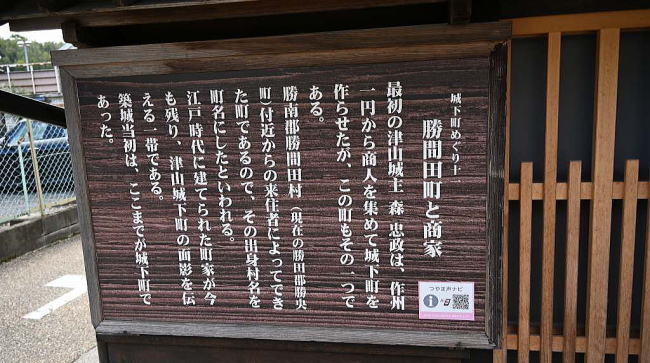 城下町めぐり十一
勝間田町と商家
最初の津山城主 森 忠政は、作州
一円から商人を集めて城下町を
作らせたが、この町もその一つで
ある。
勝南郡勝間田村(現在の勝田郡勝央
町)付近からの来住者によってでき
た町であるので、その出身村名を
町名にしたといわれる。
江戸時代に建てられた町家が今
も残り、津山城下町の面影を伝
える一帯である。
築城当初は、ここまでが城下町で
あった。
つやま声ナビ